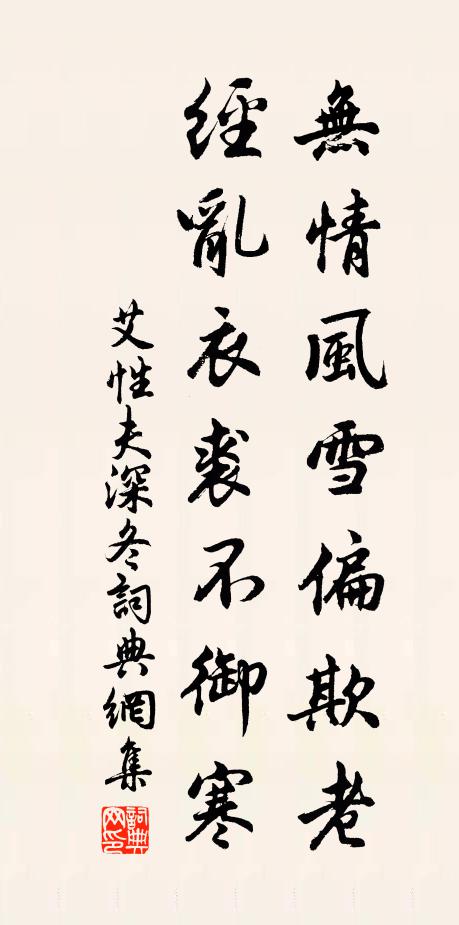 無情風雪偏欺老
經亂衣裘不御寒
艾性夫深冬詞典網集
詞典網印